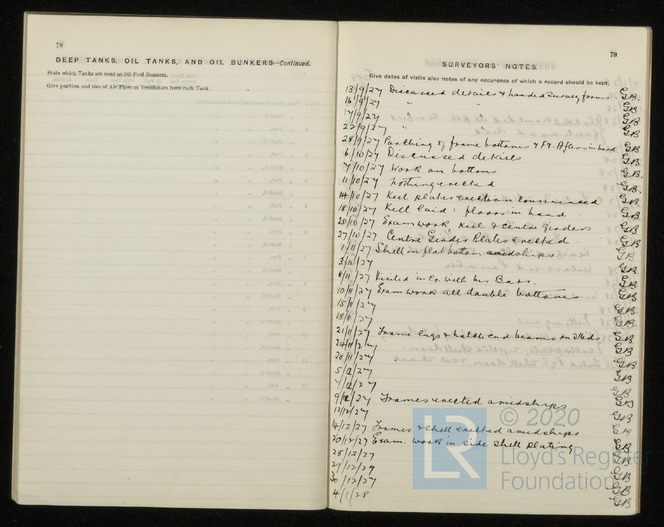 78
DEEP TANKS, OIL TANKS, AND OIL BUNKERS—Continued.
State which Tanks are used as Oil Fuel Bunkers.
Give position and size of Air Pipes or Ventilators from each Tank.
79
SURVEYORS' NOTES.
Give dates of visits also notes of any occurence of which a record should be kept.
13/9/27 Discussed details & handed survey forms GB.
16/9/27 " " GB
17/9/27 " " GB
22/9/27 " " GB
28/9/27 Punching of frame bottoms & Fr. in hand GB
6/10/27 Discussed details GB
7/10/27 Work on bottoms GB.
11/10/27 Nothing erected GB.
14/10/27 Keel plates erection commenced GB
18/10/27 Keel laid: floors in hand GB
25/10/27 Exam work, Keel & Center Girders GB
27/10/27 Centre Girder Plates erected GB
1/11/27 Shell in flat bottom amidships GB
/11/27 GB
8/11/27 Visited in Co. with Mr GB
10/11/27 Exam work all double bottoms GB
15/11/27 GB
18/11/27 GB
21/11/27 Frame lugs & hatch end beams on GB
24/11/27 GB
28/11/27 GB
5/12/27 GB
7/12/27 GB
9/12/27 Frames erected amidships GB
12/12/27 GB
14/12/27 Frames & shell erected amidships GB
20/12/27 Exam. work in side shell plating GB
28/12/27 GB
29/12/27 GB
30/12/27 GB
4/1/28 GB
LR
© 2020
Lloyd's Register
Foundation